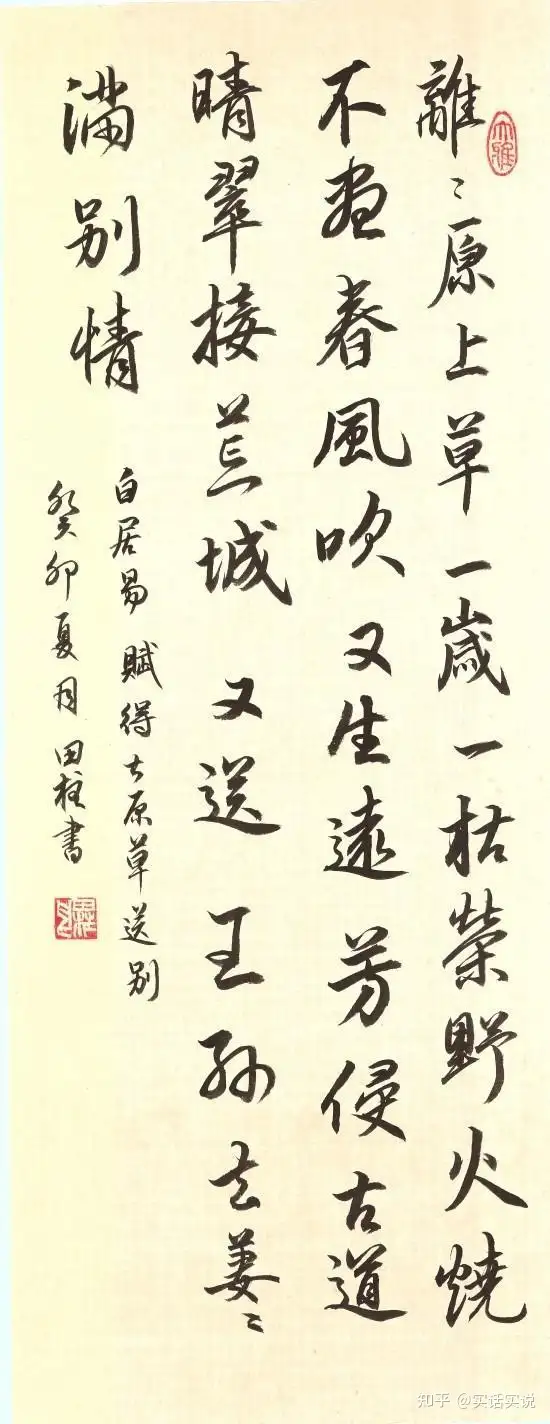 離〻原上草一歲一枯榮野火燒
不盡春風吹又生遠芳侵古道
晴翠接荒城又送王孫去萋〻
滿别情
白居易賦得古原草送别
癸卯夏月田柱書
知乎 @实话实说